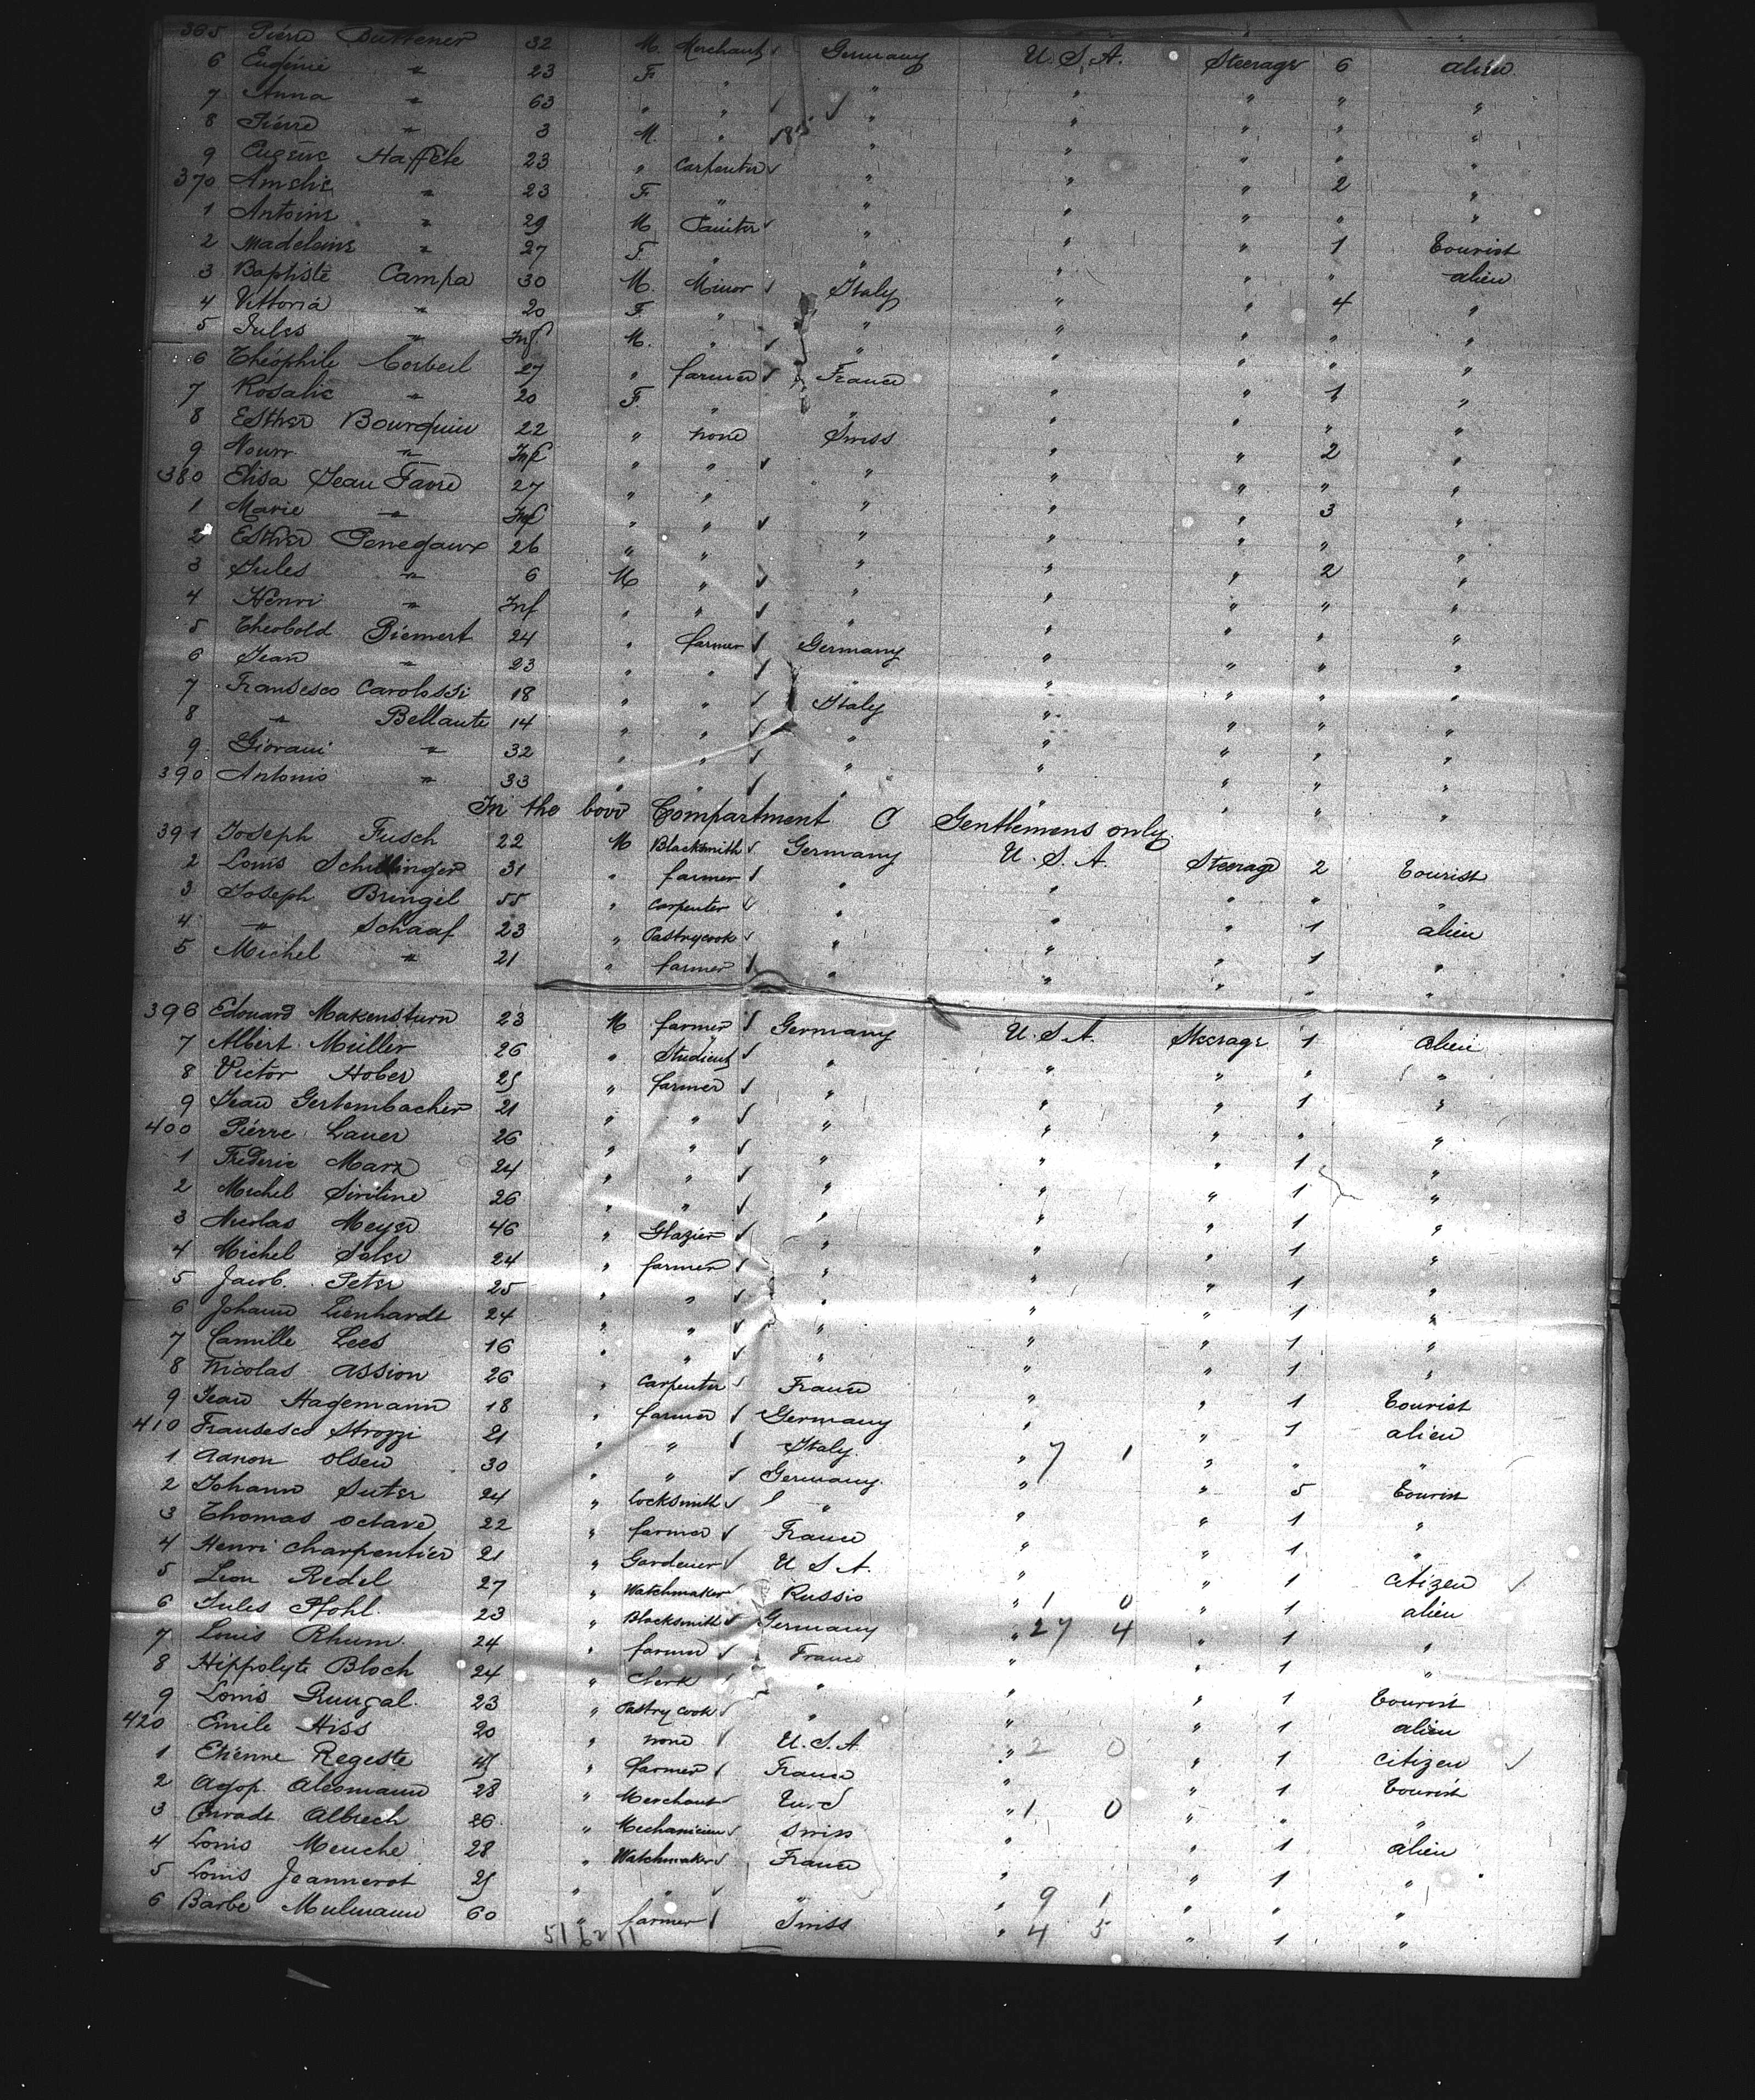 365 Piérre Buttener 32 M. Merchant ✓ Germany U.S.A. Steerage 6 alien
6 Eugénie " 23 F " " " " " "
7 Anna " 63 " " ✓ " " " " "
8 Piérre " 3 M. " ✓ " " " " "
9 Eugène Haffele 23 " Carpenter ✓ " " " 2 "
370 Amelie " 23 F " " " " " "
1 Antoine " 29 M Painter ✓ " " " 1 tourist
2 Madeleine " 27 F. " " " " " alien
3 Baptiste Campa 30 M. Minor ✓ Italy " " 4 "
4 Vittoria " 20 F. " " " " " "
5 Jules " Inf M. " ✓ " " " " "
6 Théophile Corbeil 27 " farmer ✓ France " " 1 "
7 Rosalie " 20 F. " " " " " "
8 Esther Bourquin 22 " none Swiss " " 2 "
9 Nourr " Inf " " ✓ " " " " "
380 Elisa Jean Favre 27 " " " " " 3 "
1 Marie " Inf " " ✓ " " " " "
2 Esther Penegaux 26 " " " " " 2 "
3 Jules " 6 M " ✓ " " " " "
4 Henri " Inf " " ✓ " " " " "
5 Theobold Piémert 24 " farmer ✓ Germany " " " "
6 Jean " 23 " " ✓ " " " " "
7 Fransesco Carolossi 18 " " ✓ Italy " " " "
8 " Bellaute 14 " " ✓ " " " " "
9 Giovani " 32 " " ✓ " " " " "
390 Antonio " 33 " " ✓ " " " " "
In the bow Compartment C Gentlemens only.
391 Joseph Fusch 22 M Blacksmith ✓ Germany U.S.A. Steerage 2 tourist
2 Louis Schillinger 31 " farmer ✓ " " " " "
3 Joseph Bringel 55 " Carpenter ✓ " " " 1 alien
4 " Schaaf 23 " Pastrycook ✓ " " " 1 "
5 Michel " 21 " farmer ✓ " " " " "
396 Edouard Makensturn 23 M farmer ✓ Germany U.S.A. Steerage 1 alien
7 Albert Müller 26 " Student ✓ " " " " "
8 Victor Hober 25 " farmer ✓ " " " 1 "
9 Jean Gertembacher 21 " " ✓ " " " " "
400 Piérre Lauer 26 " " ✓ " " " 1 "
1 Fréderic Marx 24 " " ✓ " " " 1 "
2 Michel Siriline 26 " " ✓ " " " 1 "
3 Nicolas Meyer 46 " Glazier ✓ " " " 1 "
4 Michel Saler 24 " farmer ✓ " " " 1 "
5 Jacob. Peter 25 " " ✓ " " " 1 "
6 Johann Lienhardt 24 " " ✓ " " " 1 "
7 Camille Lees 16 " " ✓ " " " 1 "
8 Nicolas Assion 26 " Carpenter ✓ France " " 1 tourist
9 Jean Hagemann 18 " farmer ✓ Germany " " 1 alien
410 Fransesco Strozzi 21 " " ✓ Italy " 7 1 " " "
1 Aanon Olsen 30 " " ✓ Germany. " " 5 tourist
2 Johann Suter 24 " locksmith ✓ " " " 1 "
3 Thomas Octave 22 " farmer ✓ France " " 1 "
4 Henri Charpentier 21 " Gardener ✓ U S A. " " 1 Citizen ✓
5 Leon Redel 27 " Watchmaker Russia " 1 0 " 1 alien
6 Jules Pfohl. 23 " Blacksmith ✓ Germany " 27 4 " 1 "
7 Louis Rhum. 24 " farmer ✓ France " " 1 "
8 Hippolyte Bloch 24 " Clerk ✓ " " " 1 tourist
9 Louis Rungal. 23 " Pastry cook ✓ " " " 1 alien
420 Emile Hiss 20 " none ✓ U.S.A. " 2 0 " 1 Citizen ✓
1 Etienne Regeste 45 " farmer ✓ France " " 1 tourist
2 Agop. Alesmann 28 " Merchant ✓ Turc " 1 0 " " "
3 Conradt Albrech 26 " Mechanicien ✓ Swiss " " 1 alien
4 Louis Meuche 28 " Watchmaker ✓ France " " 1 "
5 Louis Jeannerot 25 " " ✓ " " 9 1 " " "
6 Barbe Mulmann 60 " farmer ✓ Swiss " 4 5 " 1 "
51 62 11